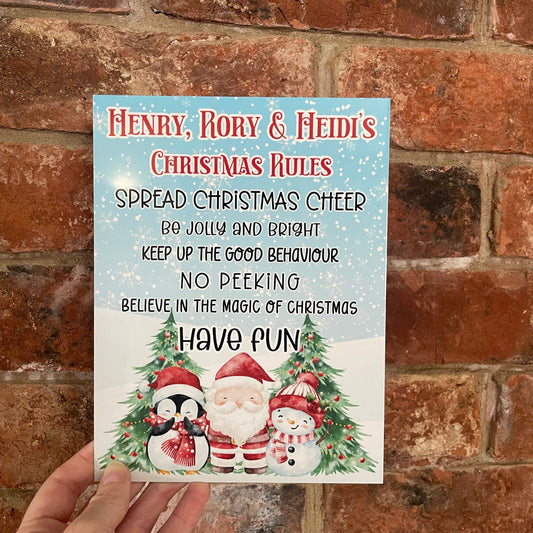 Henry, Rory & Heidi's
Christmas Rules
SPREAD CHRISTMAS CHEER
BE JOLLY AND BRIGHT
KEEP UP THE GOOD BEHAVIOUR
NO PEEKING
BELIEVE IN THE MAGIC OF CHRISTMAS
Have fun